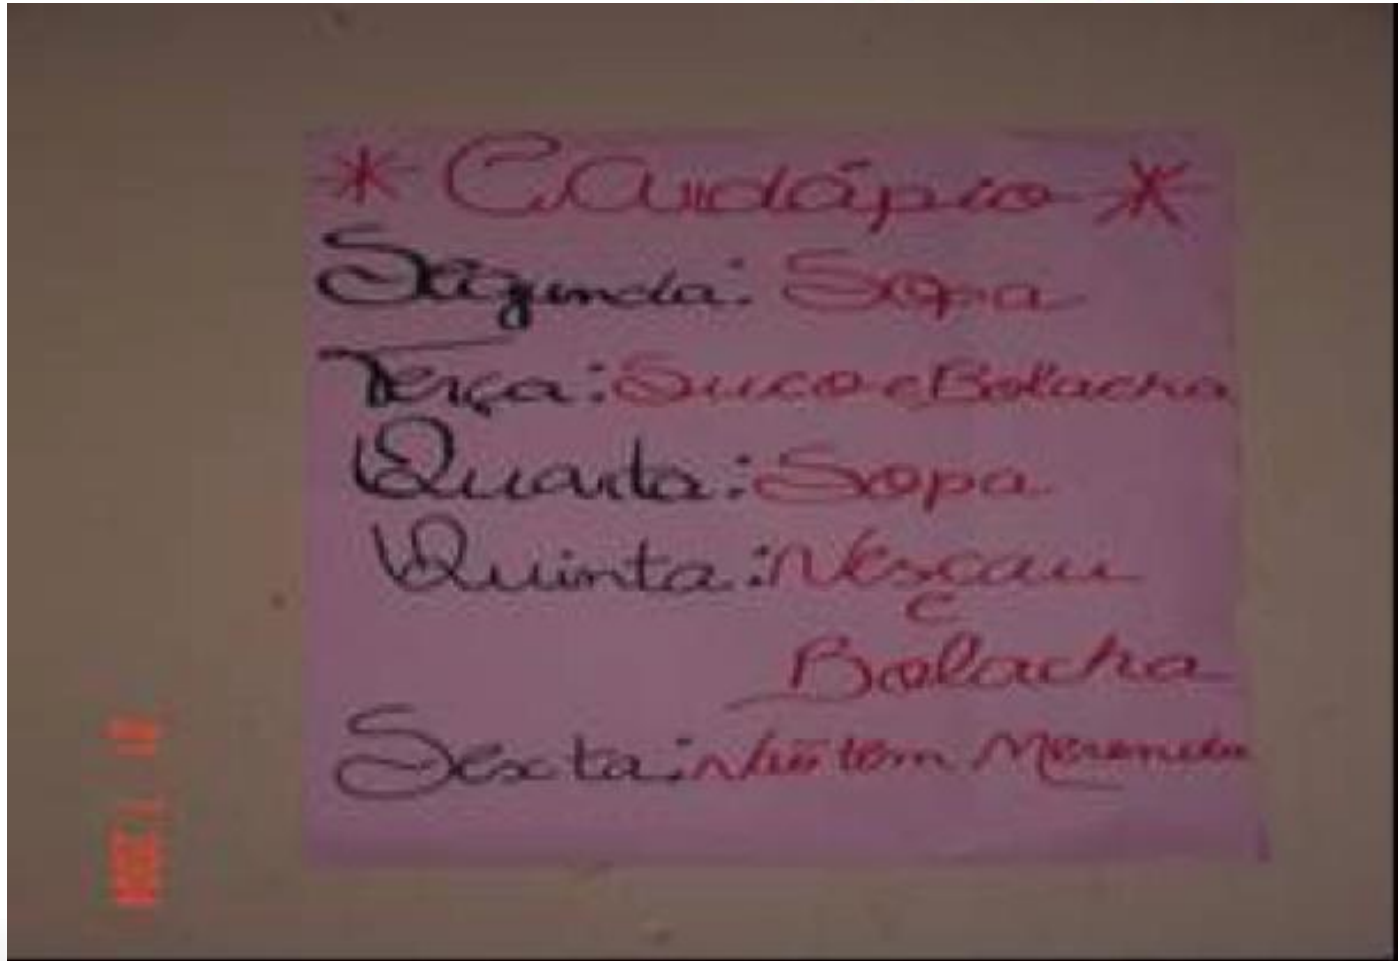 * Cardápio *
Segunda: Sopa
Terça: Suco e Bolacha
Quarta: Sopa
Quinta: Nescau
e
Bolacha
Sexta: Não têm Merenda